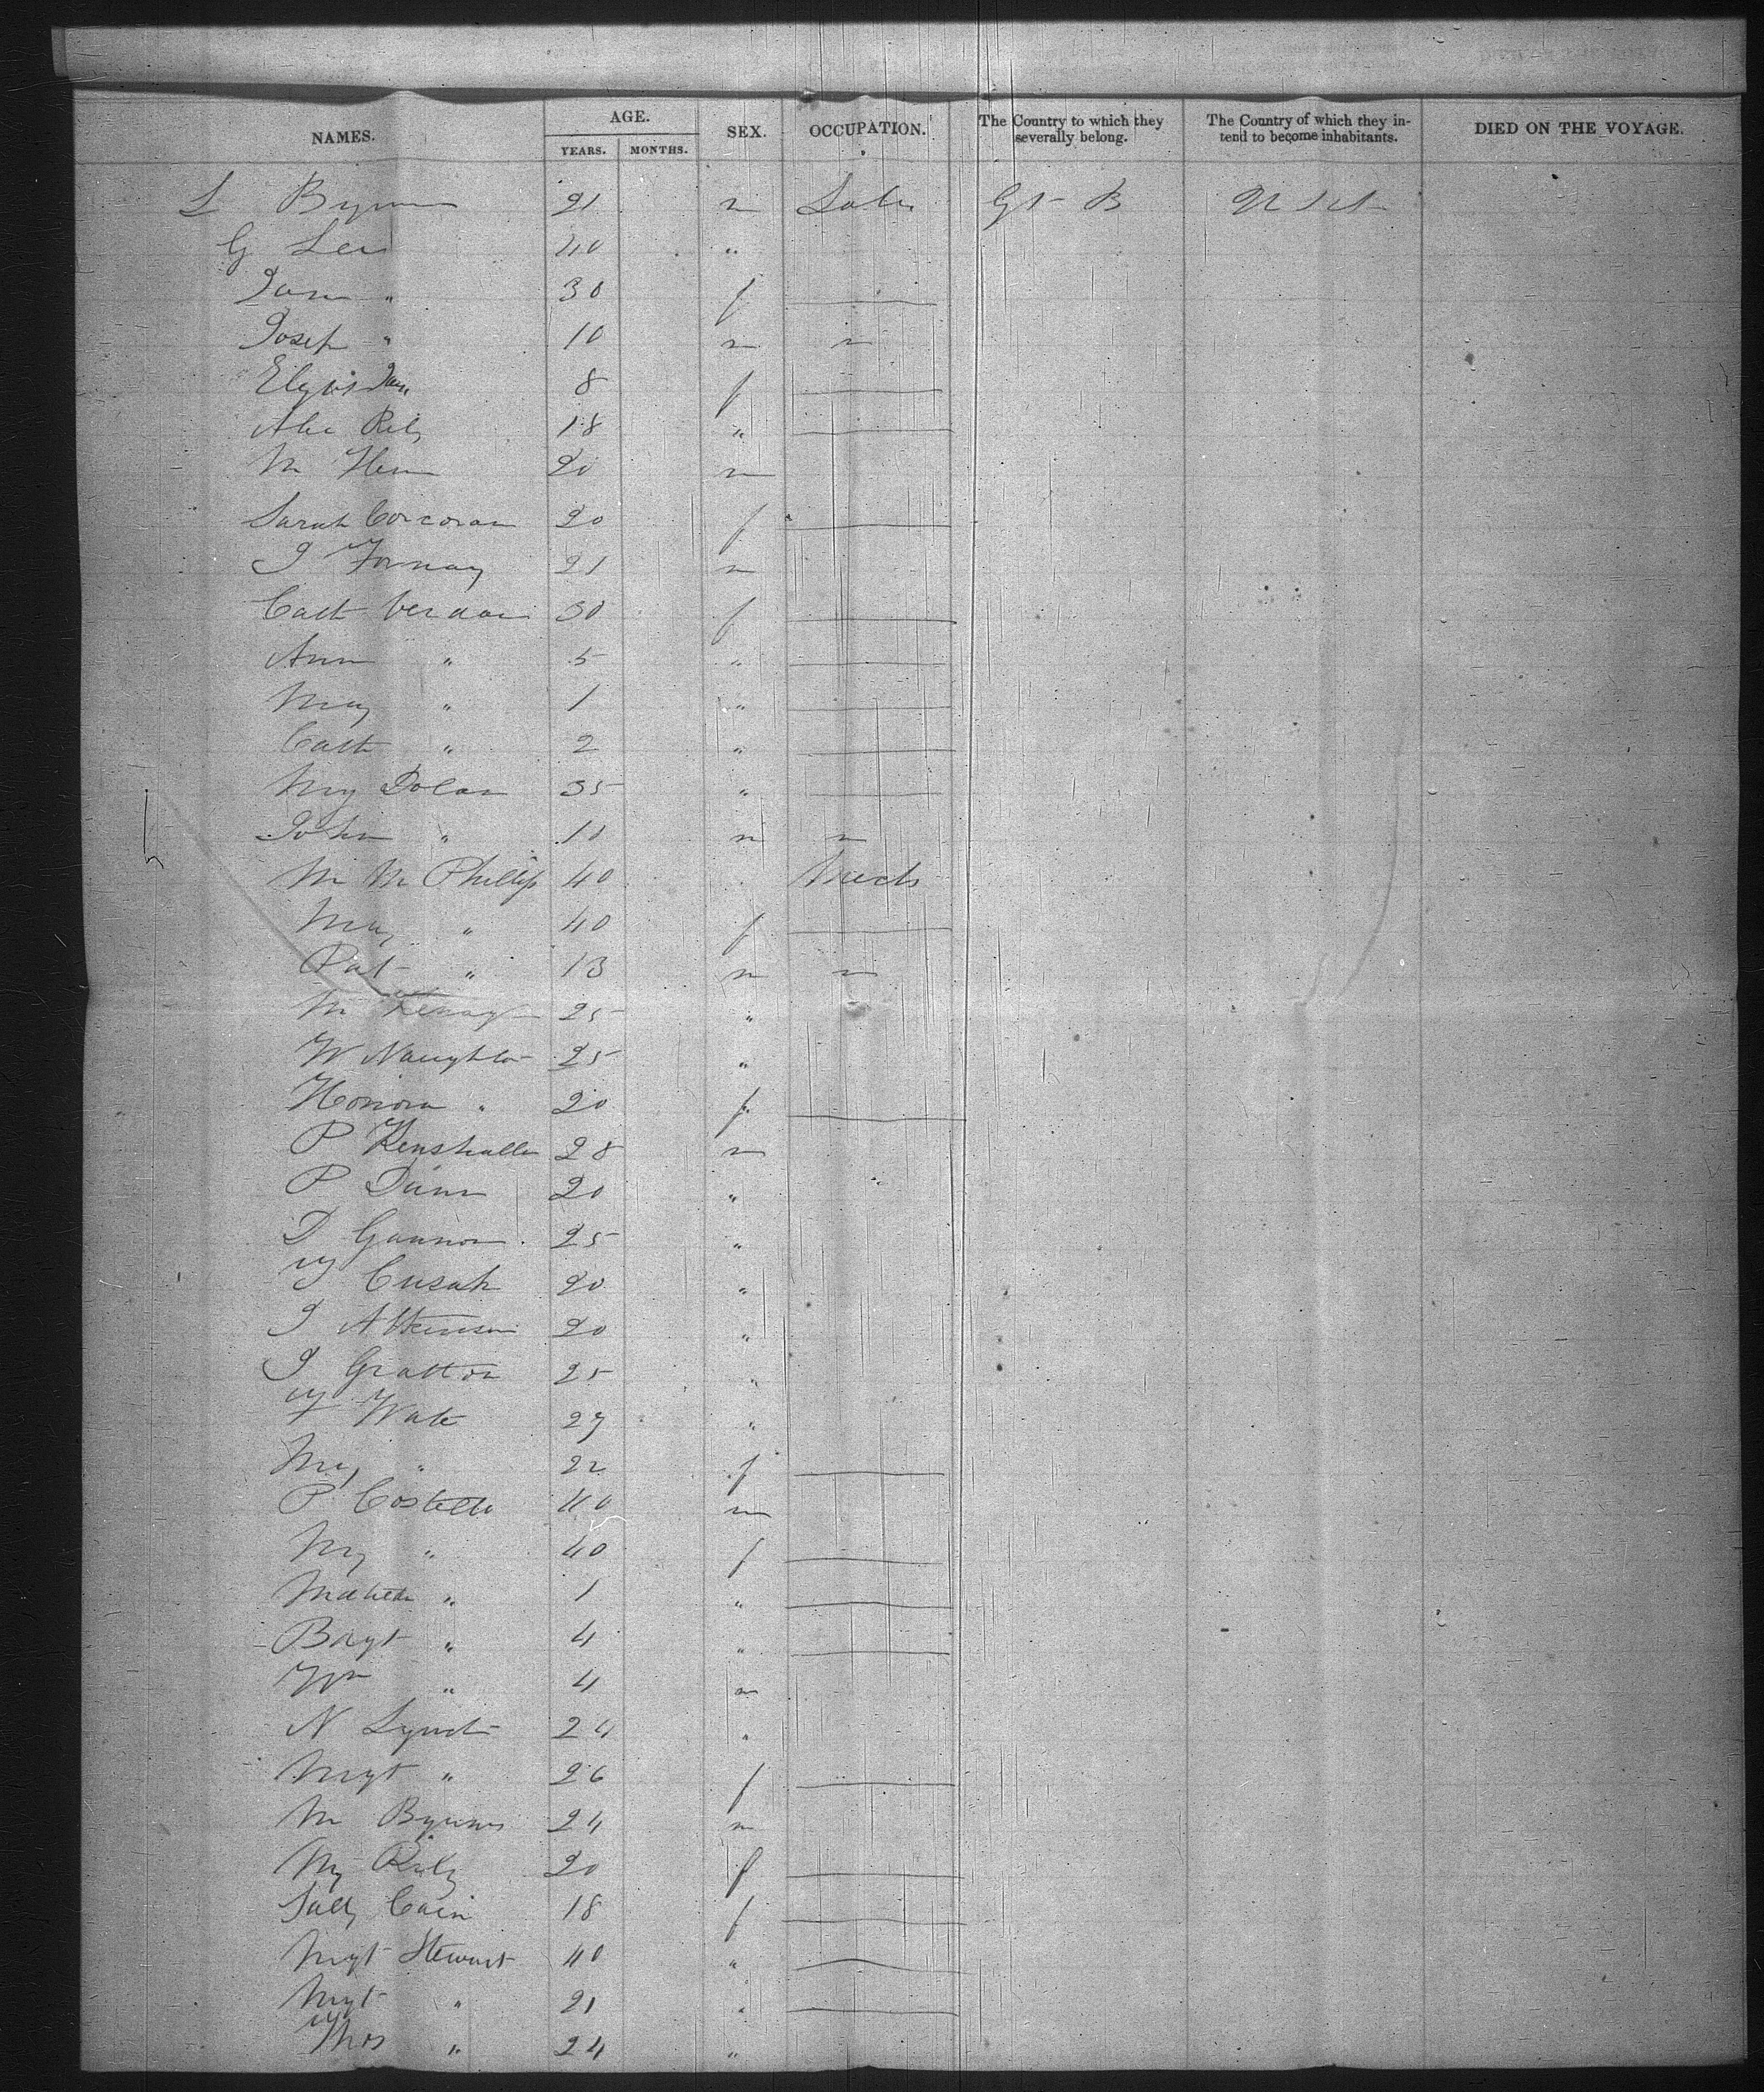 NAMES. AGE. YEARS. MONTHS. SEX. OCCUPATION. The Country to which they severally belong. The Country of which they intend to become inhabitants. DIED ON THE VOYAGE.
L Byrne 21 m Labr Gt B
G Lee 40 "
Jane " 30 f
Joseph " 10 m
8 f
Riely 18 "
M 20 m
Sarah Corcoran 20 f
J 21 m
Cath 30 f
Ann " 5 "
Mary " 1 "
Cath " 2 "
My Dolan 35 "
John " 10 m
M Phillips 40 Mech
Mary " 40 f
Pat " 13 m
M 25 "
W Naughton 25 "
Honora " 20 f
P 28 m
P Dunn 20 "
D Gannon 25 "
Cusak 20 "
J Atkinson 20 "
J Gratton 25 "
27 "
My " 22 f
P Costello 40 m
My " 40 f
Matilda " 1 "
" 4 "
Wm " 4 m
N Lynch 24 "
Mgt " 26 f
M Byrnes 24 m
My Riely 20 f
Sally Cain 18 f
Mgt Stewart 40 "
Mgt " 21 "
Thos " 24 "